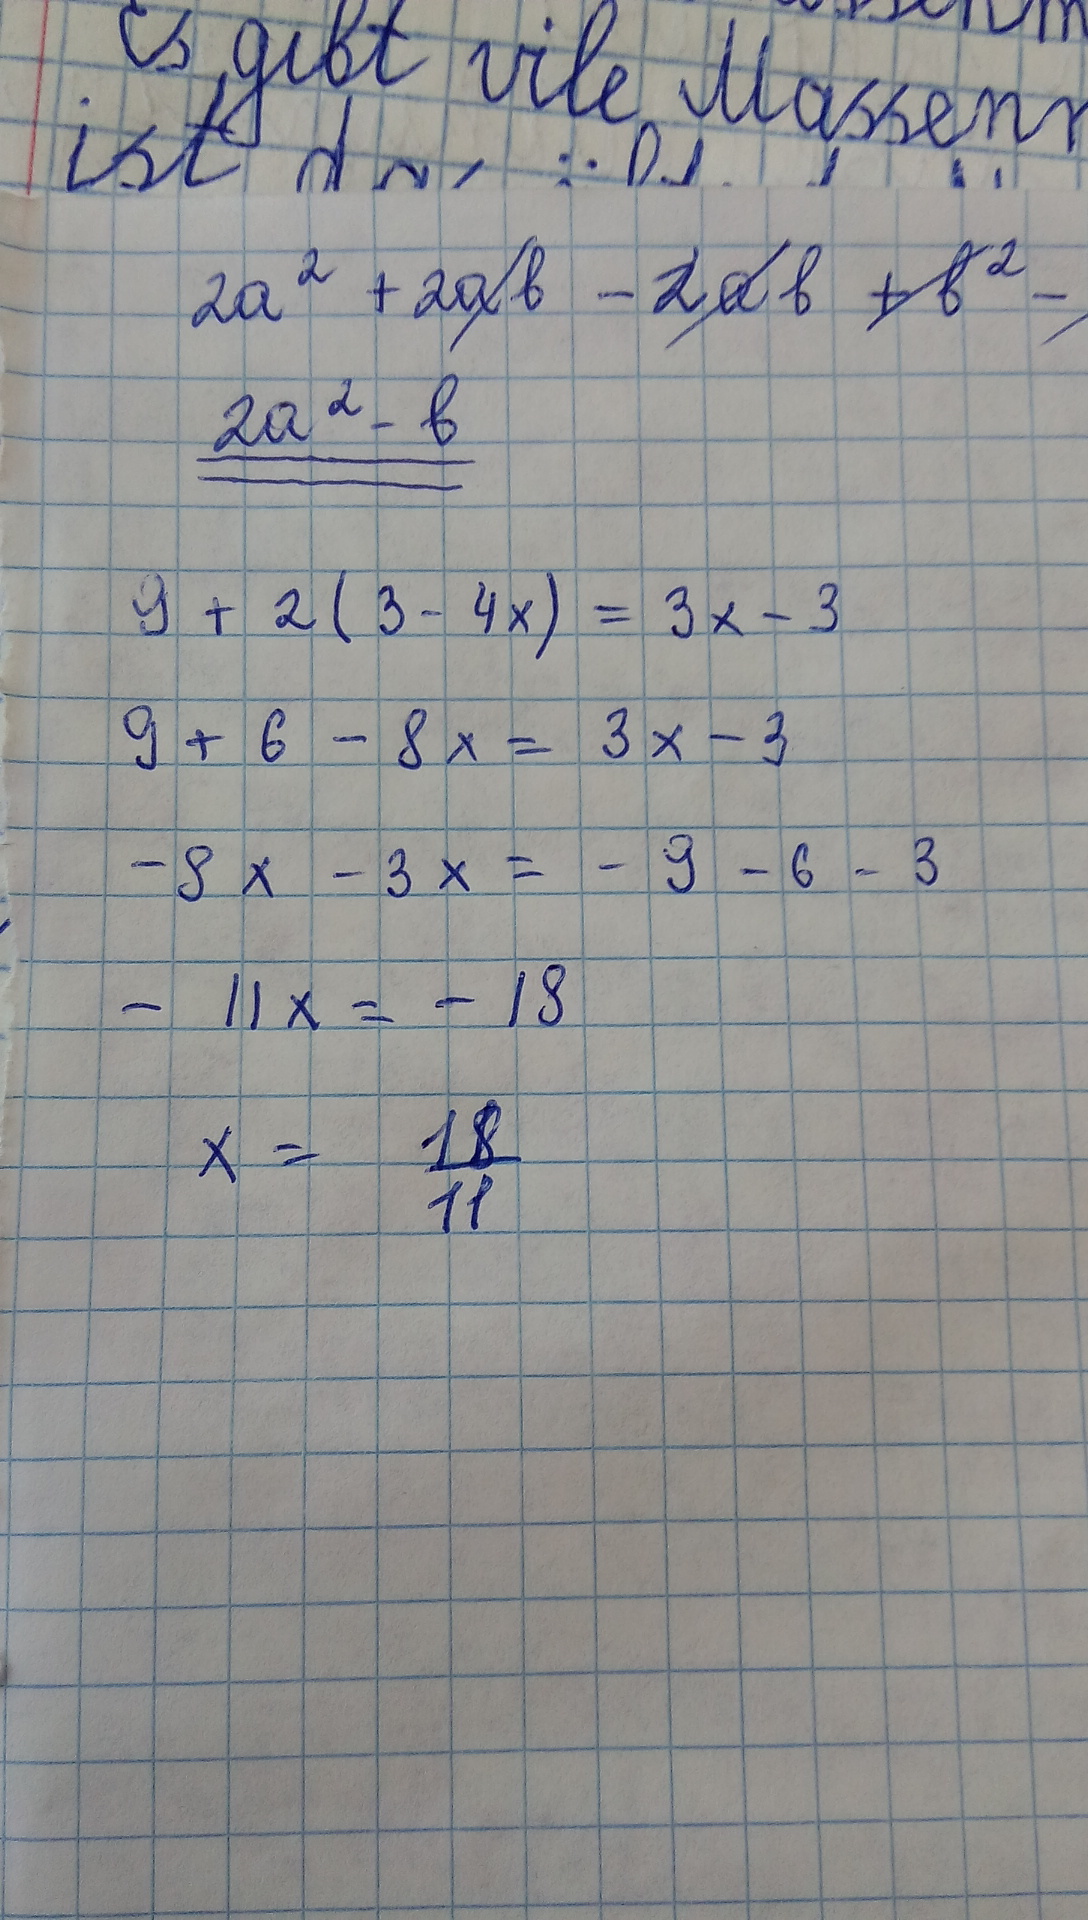 Es gibt vile Massenm
ist
2a² + 2ab - 2ab + b² -
2a² - b
9 + 2(3 - 4x) = 3x - 3
9 + 6 - 8x = 3x - 3
-8x - 3x = -9 - 6 - 3
- 11x = - 18
x = 18/11